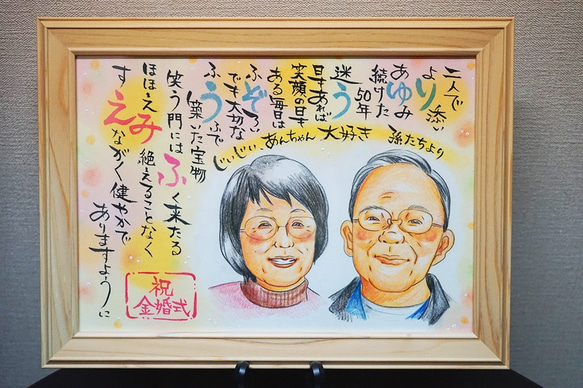 二人で
より添い
あゆみ
続けた
50年
迷う
日もあれば
笑顔の日も
ある毎日は
ふぞろい
でも大切な
ふうふで
築いた宝物
笑う門にはふく来たる
ほほえみ絶えることなく
すえながく健やかで
ありますように
じぃじぃ、あんちゃん大好き 孫たちより
祝
金婚式